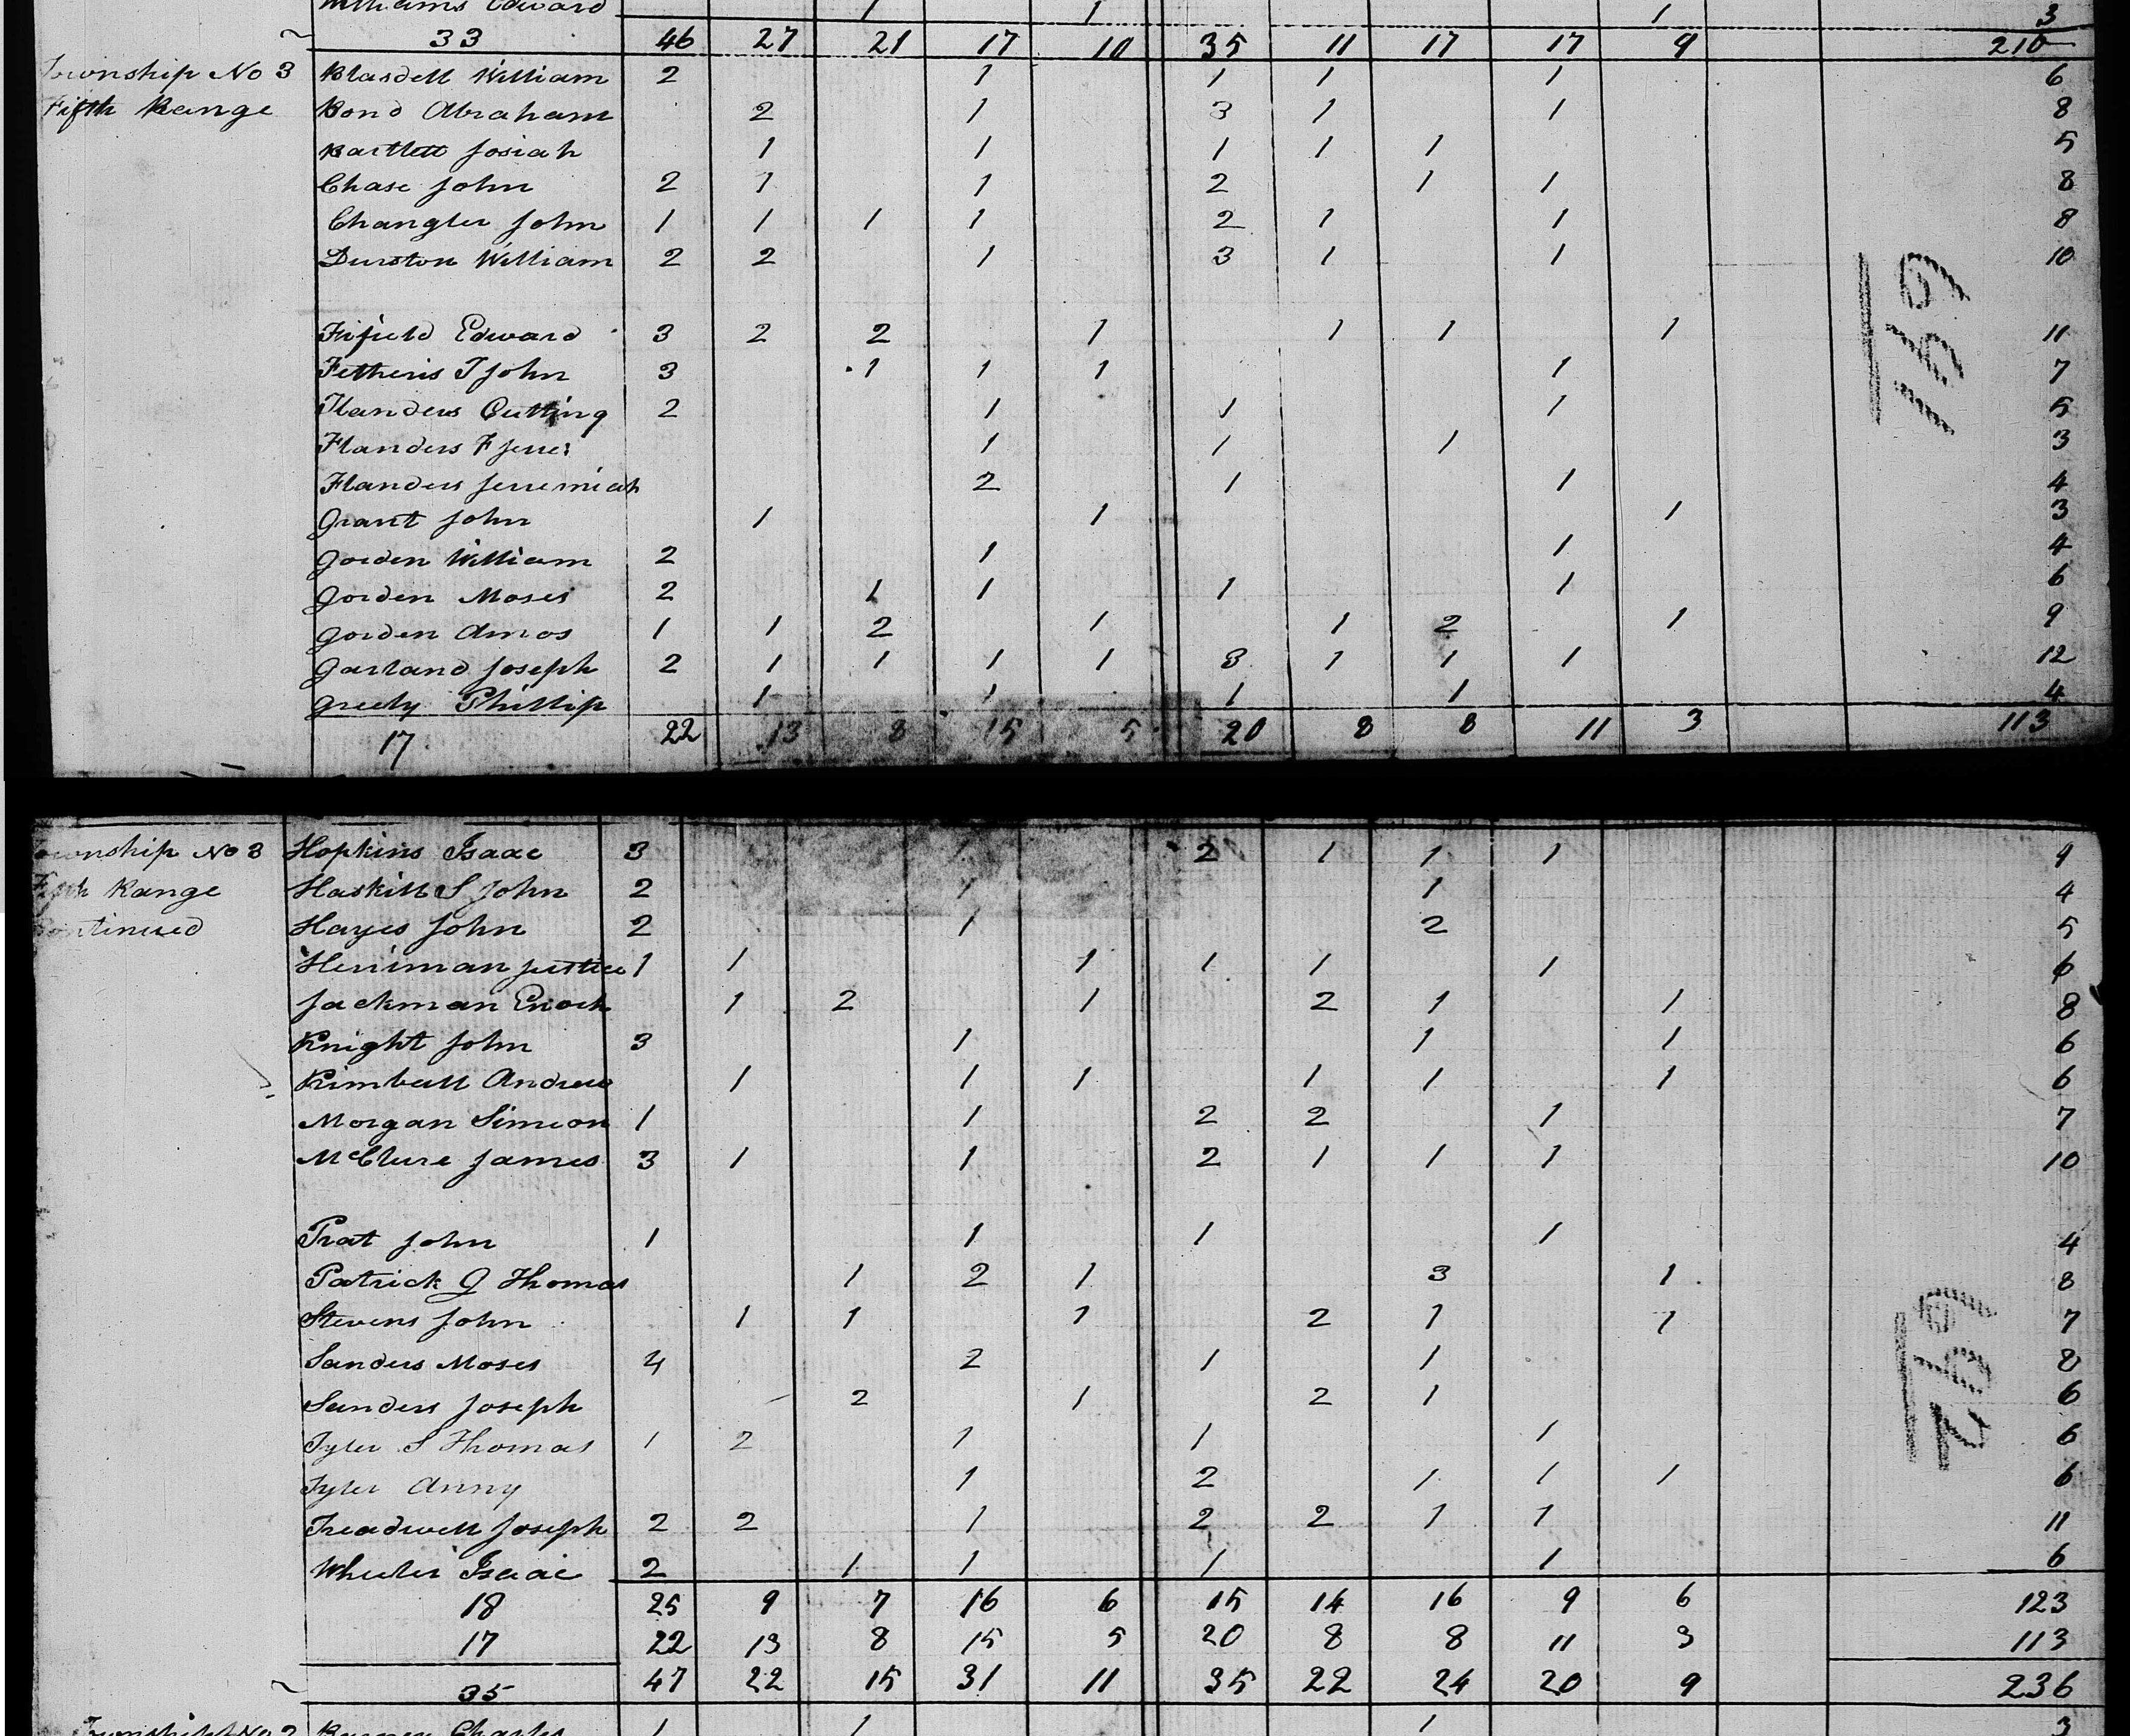 Williams Edward 1 1 1 3
33 46 27 21 17 10 35 11 17 17 9 210
Township No 3 Blasdell William 2 1 1 1 1 6
Fifth Range Bond Abraham 2 1 3 1 1 8
Bartlett Josiah 1 1 1 1 1 5
Chase John 2 1 1 2 1 1 8
Changler John 1 1 1 1 2 1 1 8
Durston William 2 2 1 3 1 1 10
Fifield Edward 3 2 2 1 1 1 1 11
Fetheris T John 3 1 1 1 1 7
Flanders Cutting 2 1 1 1 5
Flanders F 1 1 1 3
Flanders Jerremiah 2 1 1 4
Grant John 1 1 1 3
Gorden William 2 1 1 4
Gorden Moses 2 1 1 1 1 6
Gorden Amos 1 1 2 1 1 2 1 9
Garland Joseph 2 1 1 1 1 3 1 1 1 12
Greely Phillip 1 1 1 1 4
17 22 13 8 15 5 20 8 8 11 3 113
Township No 3 Hopkins Isaac 3 1 2 1 1 1 9
Fifth Range Haskill S John 2 1 1 4
Continued Hayes John 2 1 2 5
Herriman Justice 1 1 1 1 1 1 6
Jackman Enoch 1 2 1 2 1 1 8
Knight John 3 1 1 1 6
Kimball Andrew 1 1 1 1 1 1 6
Morgan Simeon 1 1 2 2 1 7
McClure James 3 1 1 2 1 1 1 10
Prat John 1 1 1 1 4
Patrick G Thomas 1 2 1 3 1 8
Stevens John 1 1 1 2 1 1 7
Sanders Moses 4 2 1 1 8
Sanders Joseph 2 1 2 1 6
Tyler S Thomas 1 2 1 1 1 6
Tyler Anny 1 2 1 1 1 6
Treadwell Joseph 2 2 1 2 2 1 1 11
Wheeler Isaac 2 1 1 1 1 6
18 25 9 7 16 6 15 14 16 9 6 123
17 22 13 8 15 5 20 8 8 11 3 113
35 47 22 15 31 11 35 22 24 20 9 236
Township No 2 Charles 1 1 1 3